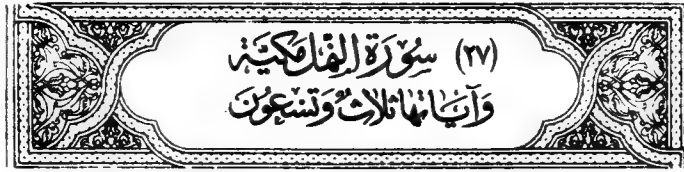 (٢٧) سُوْرَةُ النَّمْلِ مَكِّيَّة
وَآيَاتُهَا ثَلَاثٌ وَتِسْعُونَ